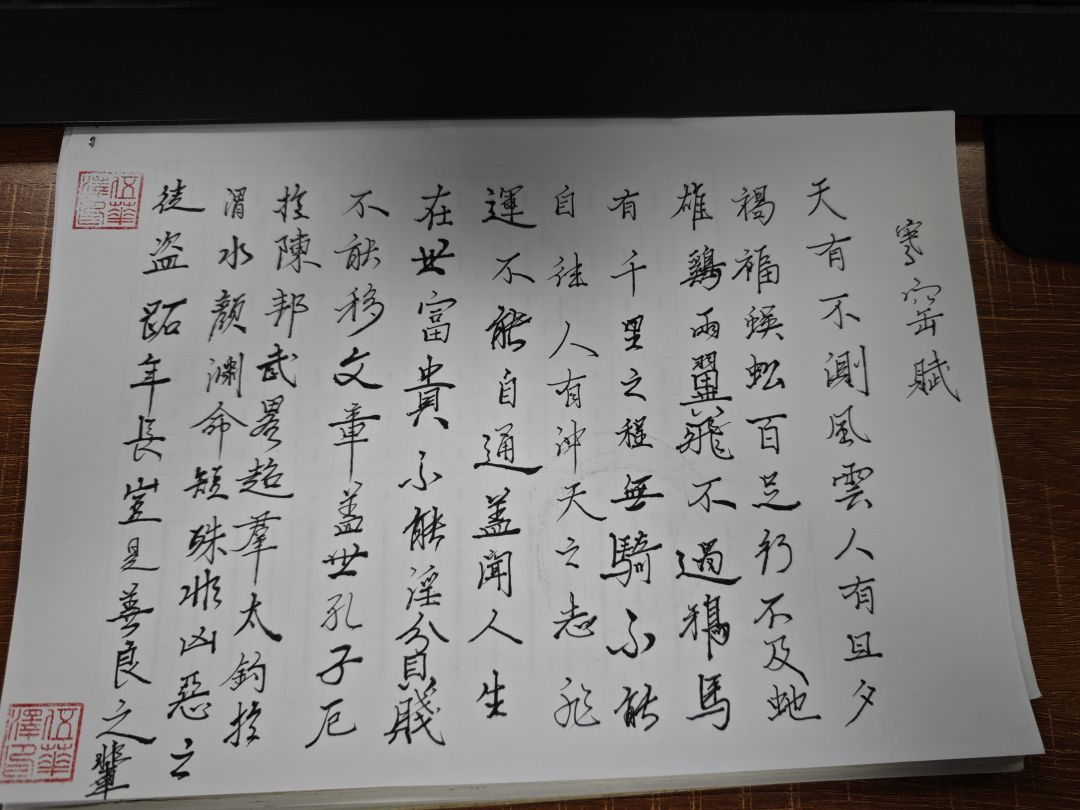 寒窑賦
天有不測風雲人有旦夕
禍福蜈蚣百足行不及虵
雄鷄兩翼飛不過鴉馬
有千里之程無騎不能
自往人有沖天之志非
運不能自通盖聞人生
在世富貴不能淫貧賤
不能移文章盖世孔子厄
於陳邦武畧超羣太釣於
渭水顏淵命短殊非凶惡之
徒盜跖年長豈是善良之輩
伍華澤印
伍華澤印